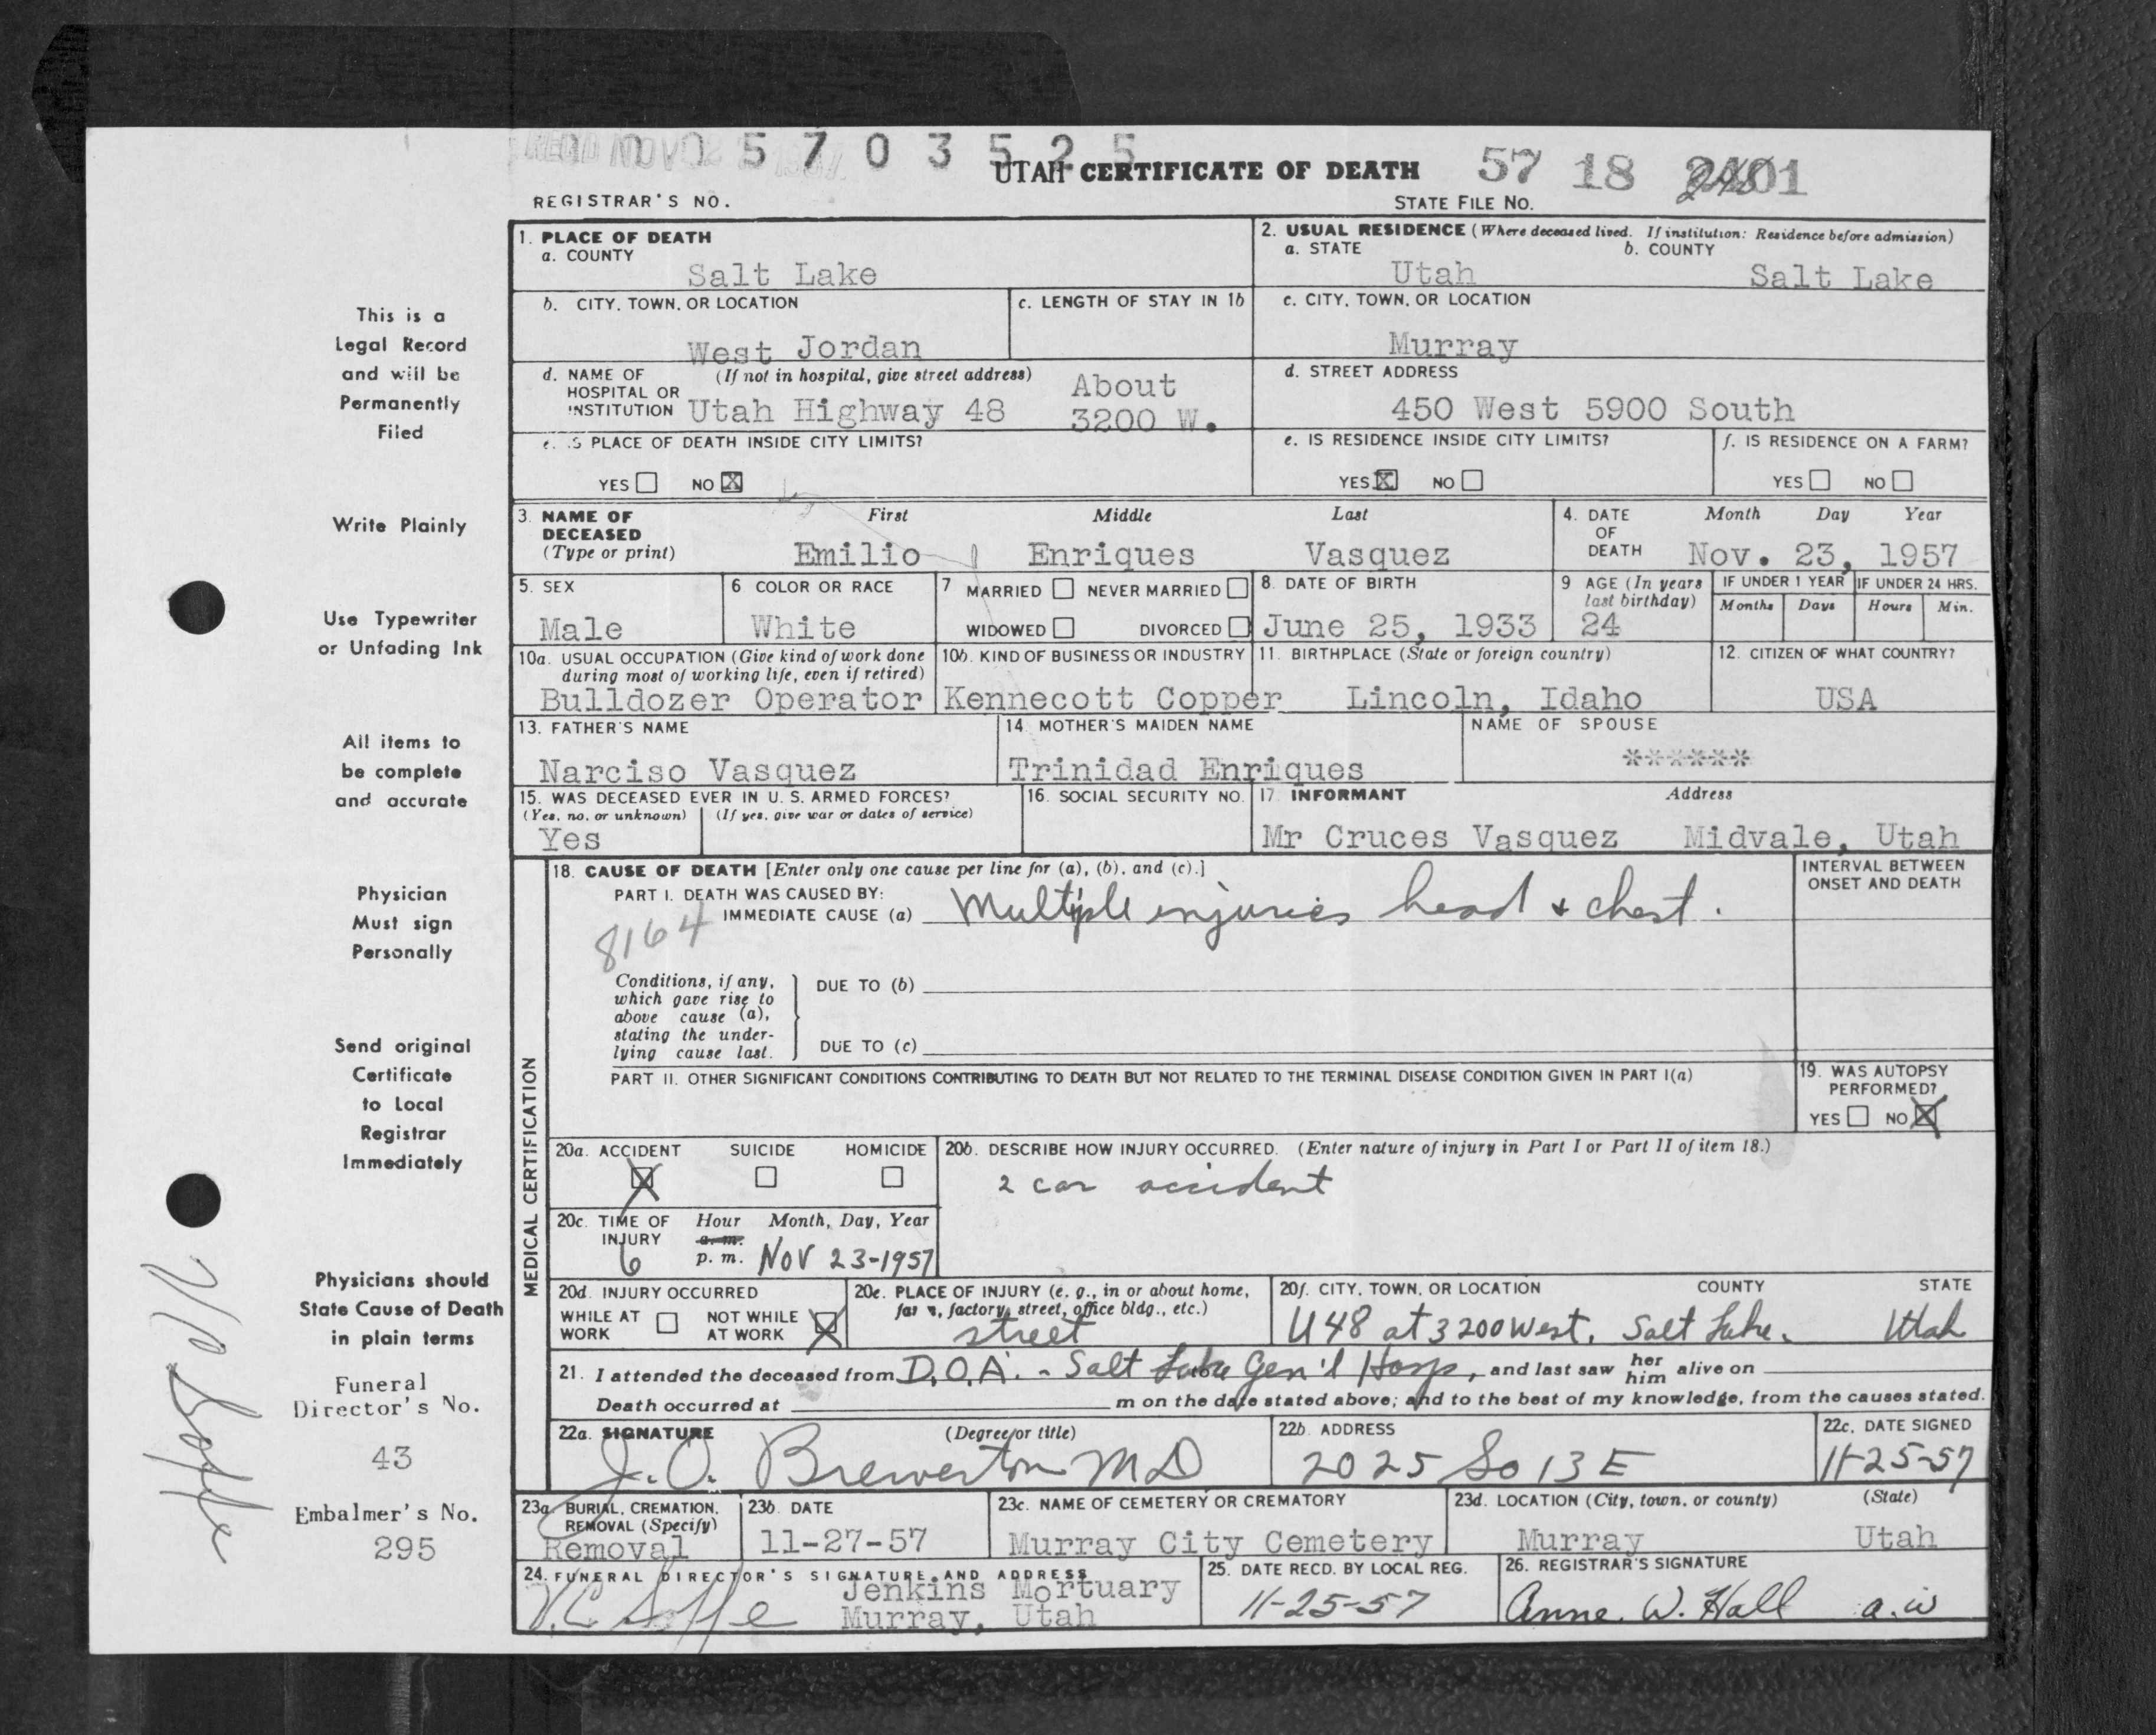 5703525
UTAH CERTIFICATE OF DEATH 57 18 2401
REGISTRAR'S NO. STATE FILE NO.
1. PLACE OF DEATH
a. COUNTY
Salt Lake
2. USUAL RESIDENCE (Where deceased lived. If institution: Residence before admission)
a. STATE b. COUNTY
Utah Salt Lake
b. CITY, TOWN, OR LOCATION
West Jordan
c. LENGTH OF STAY IN 1b
c. CITY, TOWN, OR LOCATION
Murray
d. NAME OF HOSPITAL OR INSTITUTION (If not in hospital, give street address)
Utah Highway 48 About 3200 W.
d. STREET ADDRESS
450 West 5900 South
e. IS PLACE OF DEATH INSIDE CITY LIMITS?
YES NO X
e. IS RESIDENCE INSIDE CITY LIMITS?
YES X NO
f. IS RESIDENCE ON A FARM?
YES NO
3. NAME OF DECEASED (Type or print)
First Middle Last
Emilio Enriques Vasquez
4. DATE OF DEATH Month Day Year
Nov. 23, 1957
5. SEX
Male
6 COLOR OR RACE
White
7 MARRIED NEVER MARRIED
WIDOWED DIVORCED
8. DATE OF BIRTH
June 25, 1933
9 AGE (In years last birthday)
24
IF UNDER 1 YEAR
Months Days
IF UNDER 24 HRS.
Hours Min.
10a. USUAL OCCUPATION (Give kind of work done during most of working life, even if retired)
Bulldozer Operator
10b. KIND OF BUSINESS OR INDUSTRY
Kennecott Copper
11. BIRTHPLACE (State or foreign country)
Lincoln, Idaho
12. CITIZEN OF WHAT COUNTRY?
USA
13. FATHER'S NAME
Narciso Vasquez
14 MOTHER'S MAIDEN NAME
Trinidad Enriques
NAME OF SPOUSE
******
15. WAS DECEASED EVER IN U. S. ARMED FORCES?
(Yes, no, or unknown) (If yes, give war or dates of service)
Yes
16. SOCIAL SECURITY NO.
17 INFORMANT Address
Mr Cruces Vasquez Midvale, Utah
MEDICAL CERTIFICATION
18. CAUSE OF DEATH [Enter only one cause per line for (a), (b), and (c).]
PART I. DEATH WAS CAUSED BY:
IMMEDIATE CAUSE (a) Multiple injuries head & chest.
8164
INTERVAL BETWEEN ONSET AND DEATH
Conditions, if any, which gave rise to above cause (a), stating the underlying cause last.
DUE TO (b)
DUE TO (c)
PART II. OTHER SIGNIFICANT CONDITIONS CONTRIBUTING TO DEATH BUT NOT RELATED TO THE TERMINAL DISEASE CONDITION GIVEN IN PART I(a)
19. WAS AUTOPSY PERFORMED?
YES NO X
20a. ACCIDENT SUICIDE HOMICIDE
X
20b. DESCRIBE HOW INJURY OCCURRED. (Enter nature of injury in Part I or Part II of item 18.)
2 car accident
20c. TIME OF INJURY Hour Month, Day, Year
6 a. m. p. m. NOV 23-1957
20d. INJURY OCCURRED
WHILE AT WORK NOT WHILE AT WORK X
20e. PLACE OF INJURY (e. g., in or about home, farm, factory, street, office bldg., etc.)
street
20f. CITY, TOWN, OR LOCATION COUNTY STATE
U48 at 3200 West, Salt Lake. Utah
21. I attended the deceased from D.O.A. - Salt Lake Gen'l Hosp, and last saw her him alive on
Death occurred at m on the date stated above; and to the best of my knowledge, from the causes stated.
22a. SIGNATURE (Degree or title)
J. O. Brewerton MD
22b. ADDRESS
2025 So 13 E
22c. DATE SIGNED
11-25-57
23a. BURIAL, CREMATION, REMOVAL (Specify)
Removal
23b. DATE
11-27-57
23c. NAME OF CEMETERY OR CREMATORY
Murray City Cemetery
23d. LOCATION (City, town, or county) (State)
Murray Utah
24. FUNERAL DIRECTOR'S SIGNATURE AND ADDRESS
V.C. Soffe Jenkins Mortuary
Murray, Utah
25. DATE RECD. BY LOCAL REG.
11-25-57
26. REGISTRAR'S SIGNATURE
Anne. W. Hall a.w
This is a
Legal Record
and will be
Permanently
Filed
Write Plainly
Use Typewriter
or Unfading Ink
All items to
be complete
and accurate
Physician
Must sign
Personally
Send original
Certificate
to Local
Registrar
Immediately
Physicians should
State Cause of Death
in plain terms
Funeral
Director's No.
43
Embalmer's No.
295